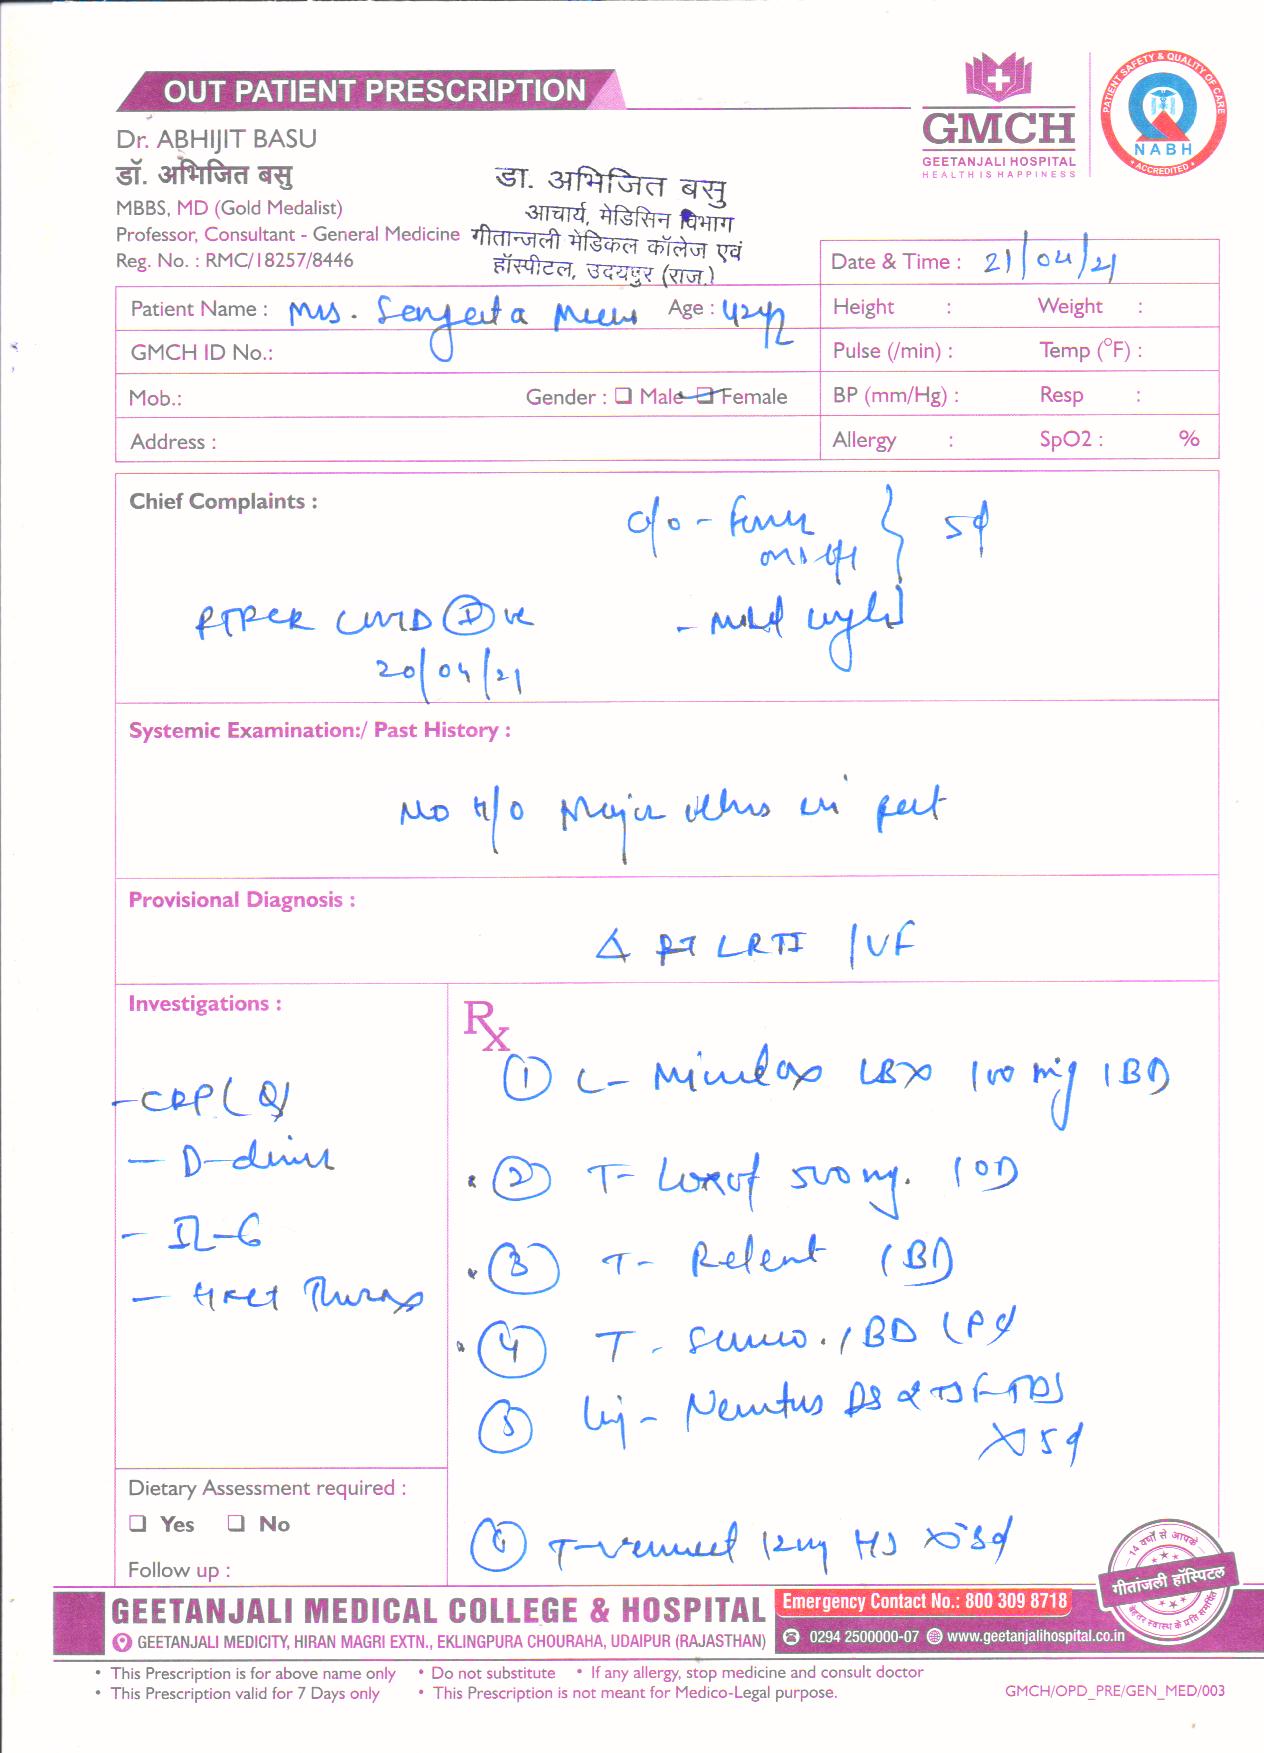 OUT PATIENT PRESCRIPTION
GMCH
GEETANJALI HOSPITAL
HEALTH IS HAPPINESS
PATIENT SAFETY & QUALITY OF CARE
NABH
ACCREDITED
Dr. ABHIJIT BASU
डॉ. अभिजित बसु
MBBS, MD (Gold Medalist)
Professor, Consultant - General Medicine
Reg. No. : RMC/18257/8446
डा. अभिजित बसु
आचार्य, मेडिसिन विभाग
गीतान्जली मेडिकल कॉलेज एवं
हॉस्पीटल, उदयपुर (राज.)
Date & Time : 21/04/21
Patient Name : Mrs. Age : 42
Height : Weight :
GMCH ID No.:
Pulse (/min) : Temp (°F) :
Mob.: Gender : Male Female
BP (mm/Hg) : Resp :
Address :
Allergy : SpO2 : %
Chief Complaints :
c/o - 5d
RTPCR COVID +ve - mild
20/04/21
Systemic Examination:/ Past History :
No H/o Major in past
Provisional Diagnosis :
Δ LRTI / VF
Investigations :
- CRP (Q)
- D-dimer
- IL-6
- HRCT Thorax
Rx
① C- LBX 100 mg 1 BD
② T- 500 mg. 1 OD
③ T- Relent 1 BD
④ T- Sumo. 1 BD
⑤ DS TDS
x 5d
⑥ T- 12mg HS x 5d
Dietary Assessment required :
Yes No
Follow up :
14 वर्षों से आपके
गीतांजली हॉस्पिटल
बेहतर स्वास्थ के प्रति समर्पित
GEETANJALI MEDICAL COLLEGE & HOSPITAL
GEETANJALI MEDICITY, HIRAN MAGRI EXTN., EKLINGPURA CHOURAHA, UDAIPUR (RAJASTHAN)
Emergency Contact No.: 800 309 8718
0294 2500000-07 www.geetanjalihospital.co.in
• This Prescription is for above name only • Do not substitute • If any allergy, stop medicine and consult doctor
• This Prescription valid for 7 Days only • This Prescription is not meant for Medico-Legal purpose.
GMCH/OPD_PRE/GEN_MED/003